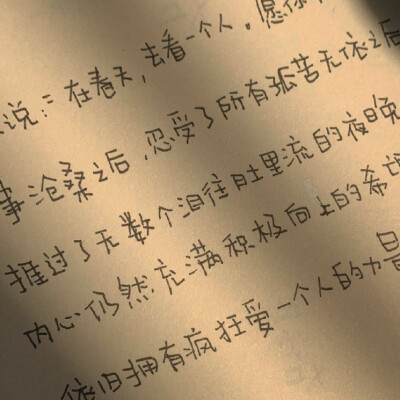 说:=在春天,去看一个人。愿你
事沧桑之后,忍受了所有孤苦无依之后
推过了无数个泪往肚里流的夜晚
内心仍然充满积极向上的希
依旧拥有疯狂爱一个人的力量